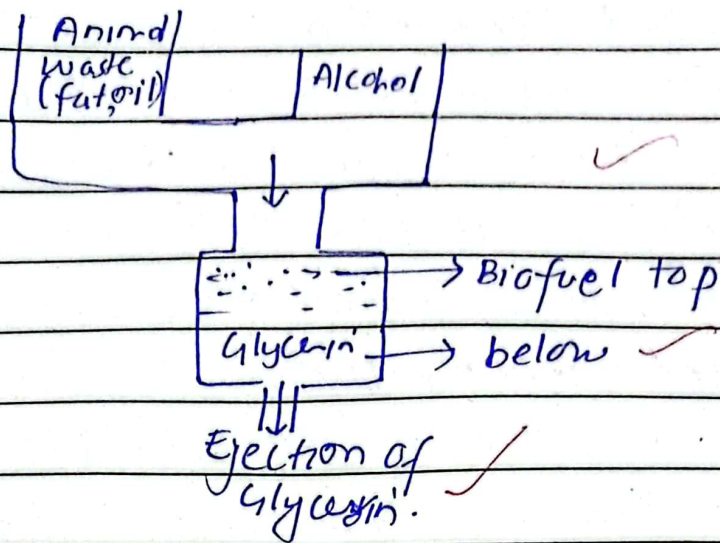 Animal
waste
(fat, oil)
Alcohol
Biofuel top
Glycerin
below
Ejection of
Glycerin.